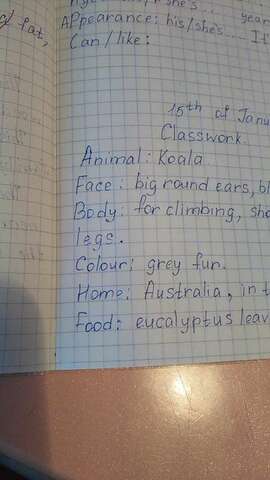 Appearance: his/she's... It
Can/like:
15th of Janu
Classwork.
Animal: Koala
Face: big round ears, bl
Body: for climbing, sho
legs.
Colour: grey fur.
Home: Australia, in t
Food: eucalyptus leav